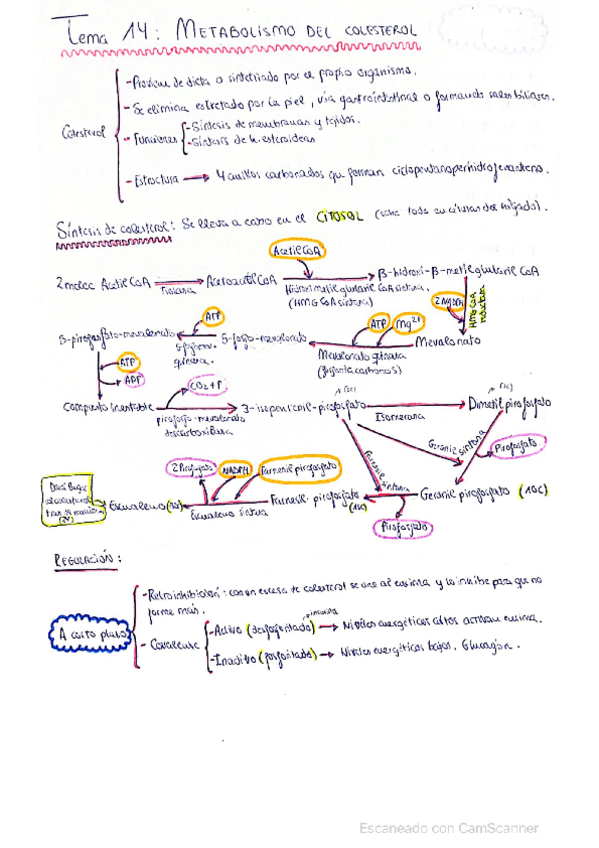 Tema 14: METABOLISMO DEL COLESTEROL
- Proviene de dieta o sintetizado por el propio organismo.
- Se elimina excretado por la piel, vía gastrointestinal o formando sales biliares.
Colesterol
- Funciones
- Síntesis de membranas y tejidos.
- Síntesis de h. esteroideas
- Estructura → 4 anillos carbonados que forman ciclopentanoperhidrofenantreno.
Síntesis de colesterol: Se lleva a cabo en el CITOSOL (sobre todo en células del hígado).
Acetil CoA
2 molec Acetil CoA
Tiolasa
Acetoacetil CoA
Hidroximetilglutaril CoA sintasa
(HMG CoA sintasa)
β-hidroxi-β-metilglutaril CoA
2 NADPH
HMG CoA
reductasa
Mevalonato
ATP
Mg2+
Mevalonato quinasa
(fosforila carbono 5)
5-fosfo-mevalonato
ATP
quinasa
5-pirofosfato-mevalonato
ATP
ADP
Compuesto inestable
CO2+P
pirofosfo-mevalonato
descarboxilasa
3-isopentenil-pirofosfato
(5C)
Isomerasa
Dimetil pirofosfato
(5C)
Geranil sintasa
Pirofosfato
Farnesil
sintasa
Geranil pirofosfato (10C)
Pirofosfato
Farnesil-pirofosfato
2 Pirofosfato
NADPH
Farnesil pirofosfato
Escualeno sintasa
Escualeno
Da a lugar
al colesterol
tras
REGULACIÓN:
A corto plazo
- Retroinhibición: con un exceso de colesterol se une al enzima y lo inhibe para que no
forme más.
- Covalente
insulina
- Activo (desfosforilado) → Niveles energéticos altos activan enzima.
- Inactivo (fosforilado) → Niveles energéticos bajos. Glucagón.
Escaneado con CamScanner